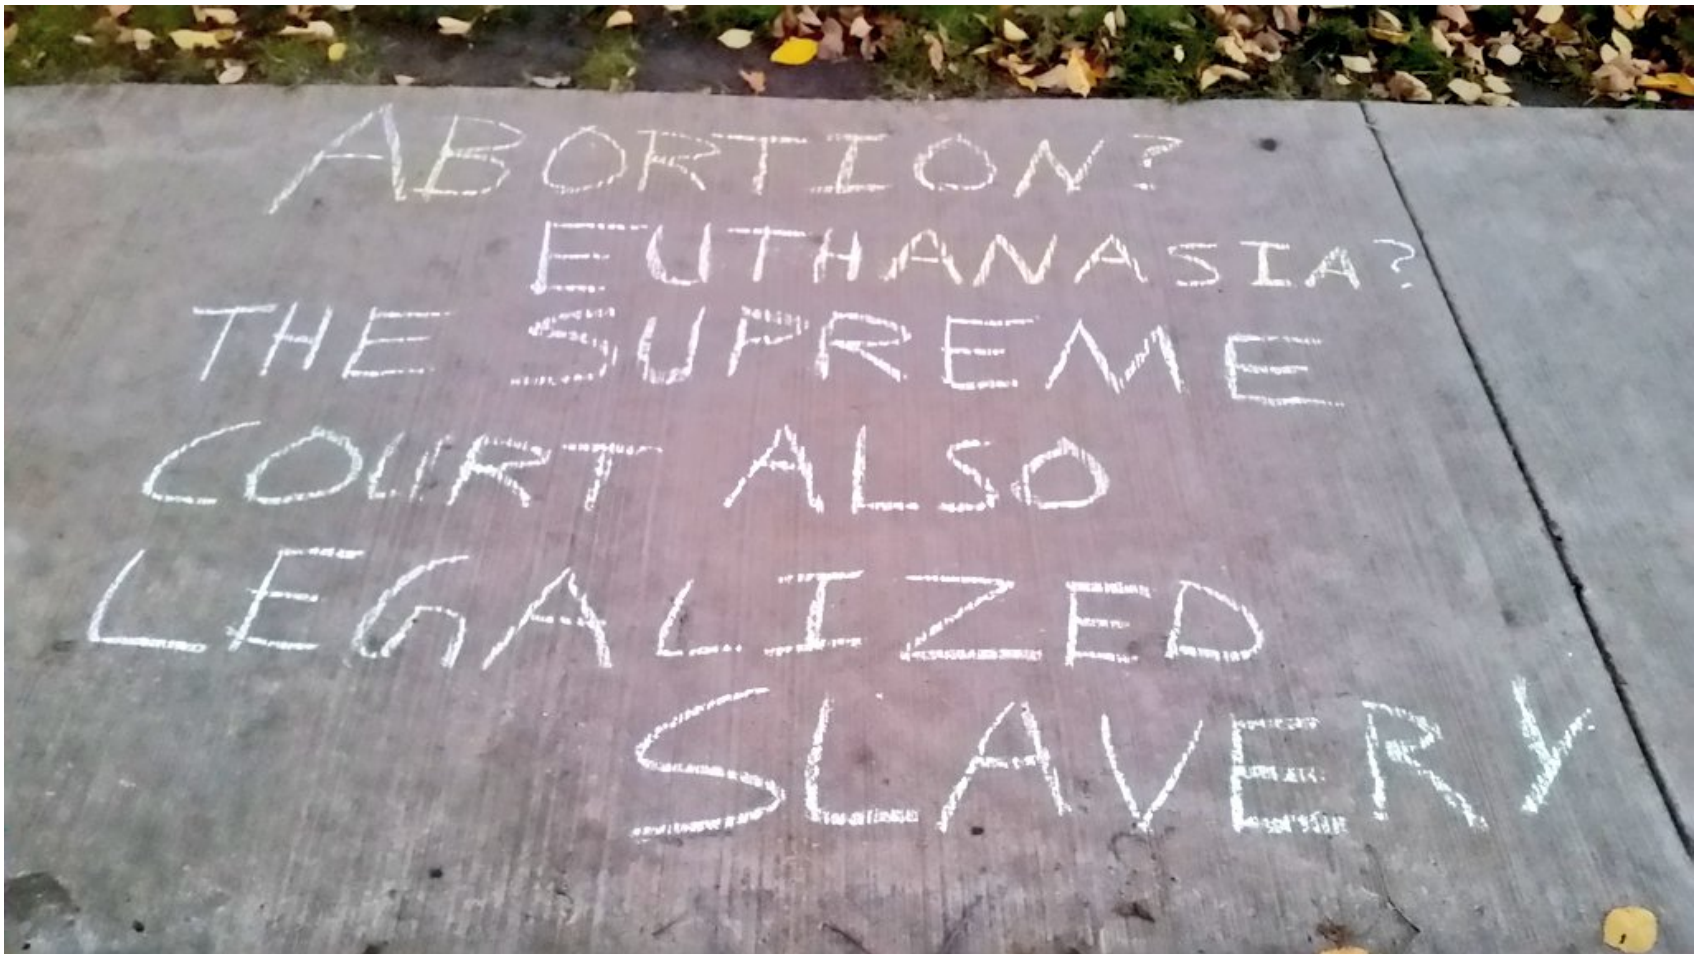 ABORTION?
EUTHANASIA?
THE SUPREME
COURT ALSO
LEGALIZED
SLAVERY